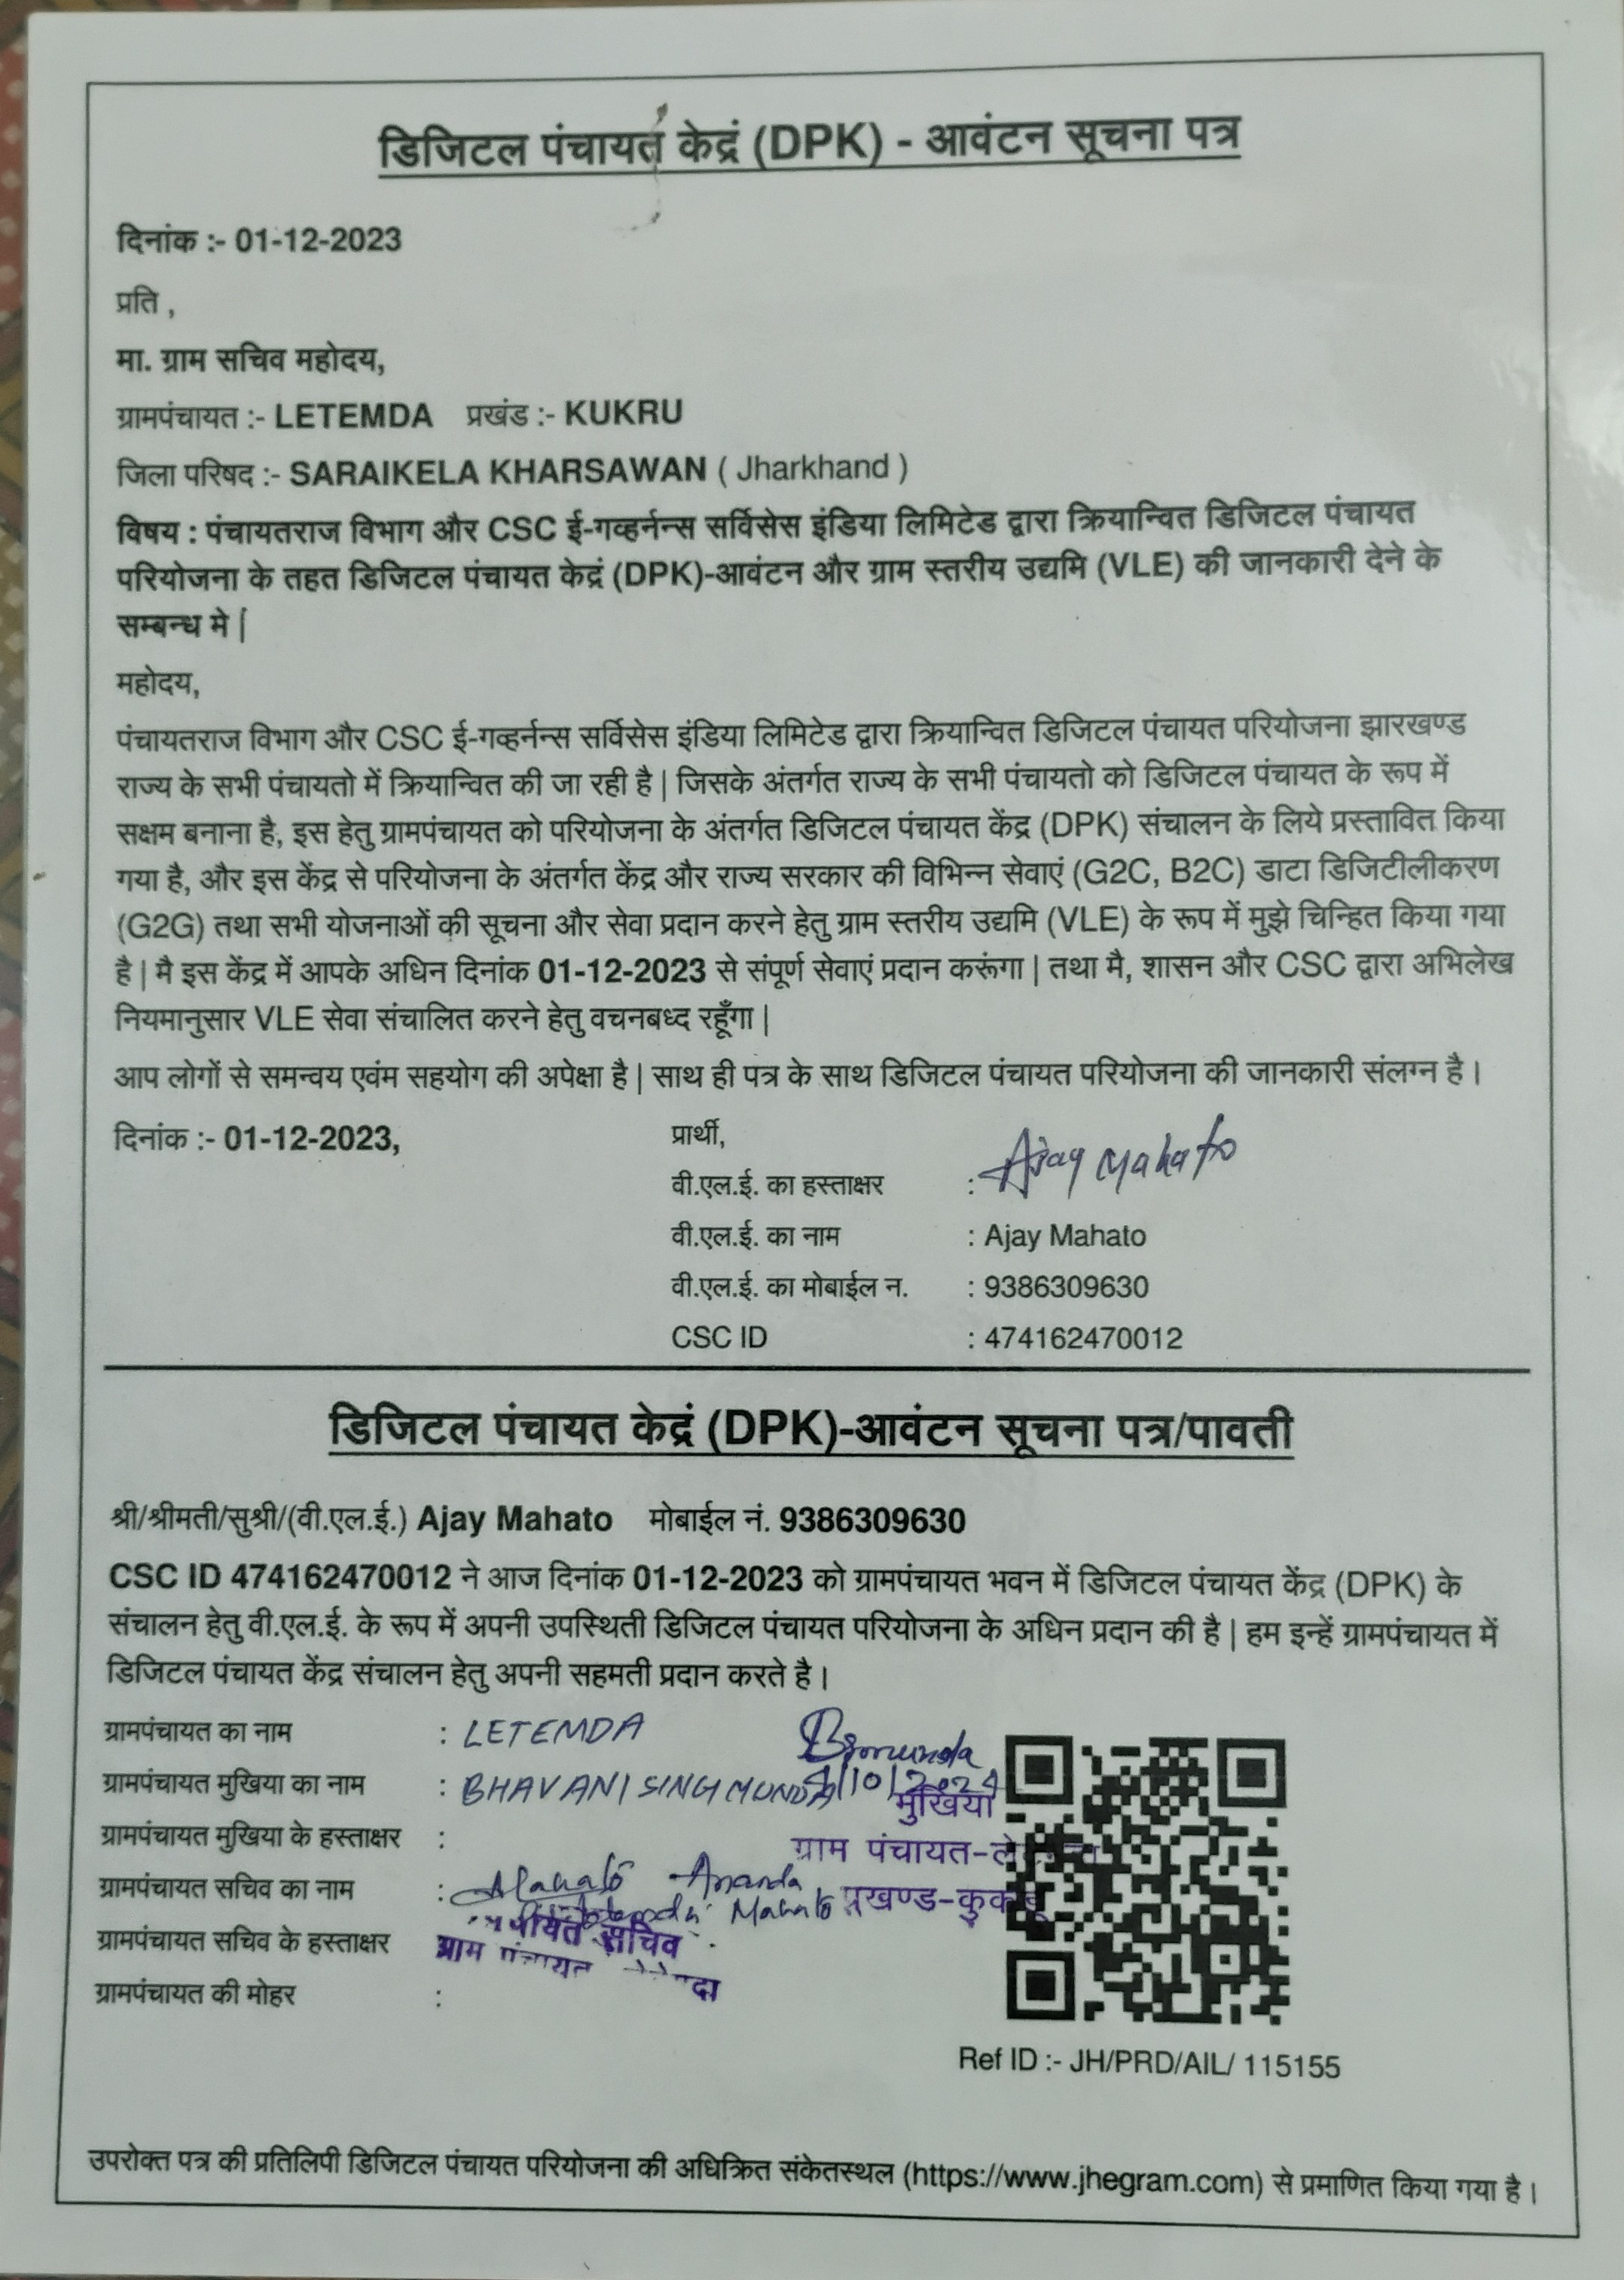 डिजिटल पंचायत केद्रं (DPK) - आवंटन सूचना पत्र
दिनांक :- 01-12-2023
प्रति ,
मा. ग्राम सचिव महोदय,
ग्रामपंचायत :- LETEMDA प्रखंड :- KUKRU
जिला परिषद :- SARAIKELA KHARSAWAN ( Jharkhand )
विषय : पंचायतराज विभाग और CSC ई-गव्हर्नन्स सर्विसेस इंडिया लिमिटेड द्वारा क्रियान्वित डिजिटल पंचायत
परियोजना के तहत डिजिटल पंचायत केद्रं (DPK)-आवंटन और ग्राम स्तरीय उद्यमि (VLE) की जानकारी देने के
सम्बन्ध मे |
महोदय,
पंचायतराज विभाग और CSC ई-गव्हर्नन्स सर्विसेस इंडिया लिमिटेड द्वारा क्रियान्वित डिजिटल पंचायत परियोजना झारखण्ड
राज्य के सभी पंचायतो में क्रियान्वित की जा रही है | जिसके अंतर्गत राज्य के सभी पंचायतो को डिजिटल पंचायत के रूप में
सक्षम बनाना है, इस हेतु ग्रामपंचायत को परियोजना के अंतर्गत डिजिटल पंचायत केंद्र (DPK) संचालन के लिये प्रस्तावित किया
गया है, और इस केंद्र से परियोजना के अंतर्गत केंद्र और राज्य सरकार की विभिन्न सेवाएं (G2C, B2C) डाटा डिजिटीलीकरण
(G2G) तथा सभी योजनाओं की सूचना और सेवा प्रदान करने हेतु ग्राम स्तरीय उद्यमि (VLE) के रूप में मुझे चिन्हित किया गया
है | मै इस केंद्र में आपके अधिन दिनांक 01-12-2023 से संपूर्ण सेवाएं प्रदान करूंगा | तथा मै, शासन और CSC द्वारा अभिलेख
नियमानुसार VLE सेवा संचालित करने हेतु वचनबध्द रहूँगा |
आप लोगों से समन्वय एवंम सहयोग की अपेक्षा है | साथ ही पत्र के साथ डिजिटल पंचायत परियोजना की जानकारी संलग्न है ।
दिनांक :- 01-12-2023, प्रार्थी,
वी.एल.ई. का हस्ताक्षर : Ajay Mahato
वी.एल.ई. का नाम : Ajay Mahato
वी.एल.ई. का मोबाईल न. : 9386309630
CSC ID : 474162470012
डिजिटल पंचायत केद्रं (DPK)-आवंटन सूचना पत्र/पावती
श्री/श्रीमती/सुश्री/(वी.एल.ई.) Ajay Mahato मोबाईल नं. 9386309630
CSC ID 474162470012 ने आज दिनांक 01-12-2023 को ग्रामपंचायत भवन में डिजिटल पंचायत केंद्र (DPK) के
संचालन हेतु वी.एल.ई. के रूप में अपनी उपस्थिती डिजिटल पंचायत परियोजना के अधिन प्रदान की है | हम इन्हें ग्रामपंचायत में
डिजिटल पंचायत केंद्र संचालन हेतु अपनी सहमती प्रदान करते है ।
ग्रामपंचायत का नाम : LETEMDA
ग्रामपंचायत मुखिया का नाम : BHAVANI SINGH MUNDA
मुखिया
ग्रामपंचायत मुखिया के हस्ताक्षर :
ग्राम पंचायत-
ग्रामपंचायत सचिव का नाम : Mahato Ananda
Mahato
प्रखण्ड-कुकडू
ग्रामपंचायत सचिव के हस्ताक्षर
पंचायत सचिव
ग्राम पंचायत
ग्रामपंचायत की मोहर :
Ref ID :- JH/PRD/AIL/ 115155
उपरोक्त पत्र की प्रतिलिपी डिजिटल पंचायत परियोजना की अधिक्रित संकेतस्थल (https://www.jhegram.com) से प्रमाणित किया गया है ।